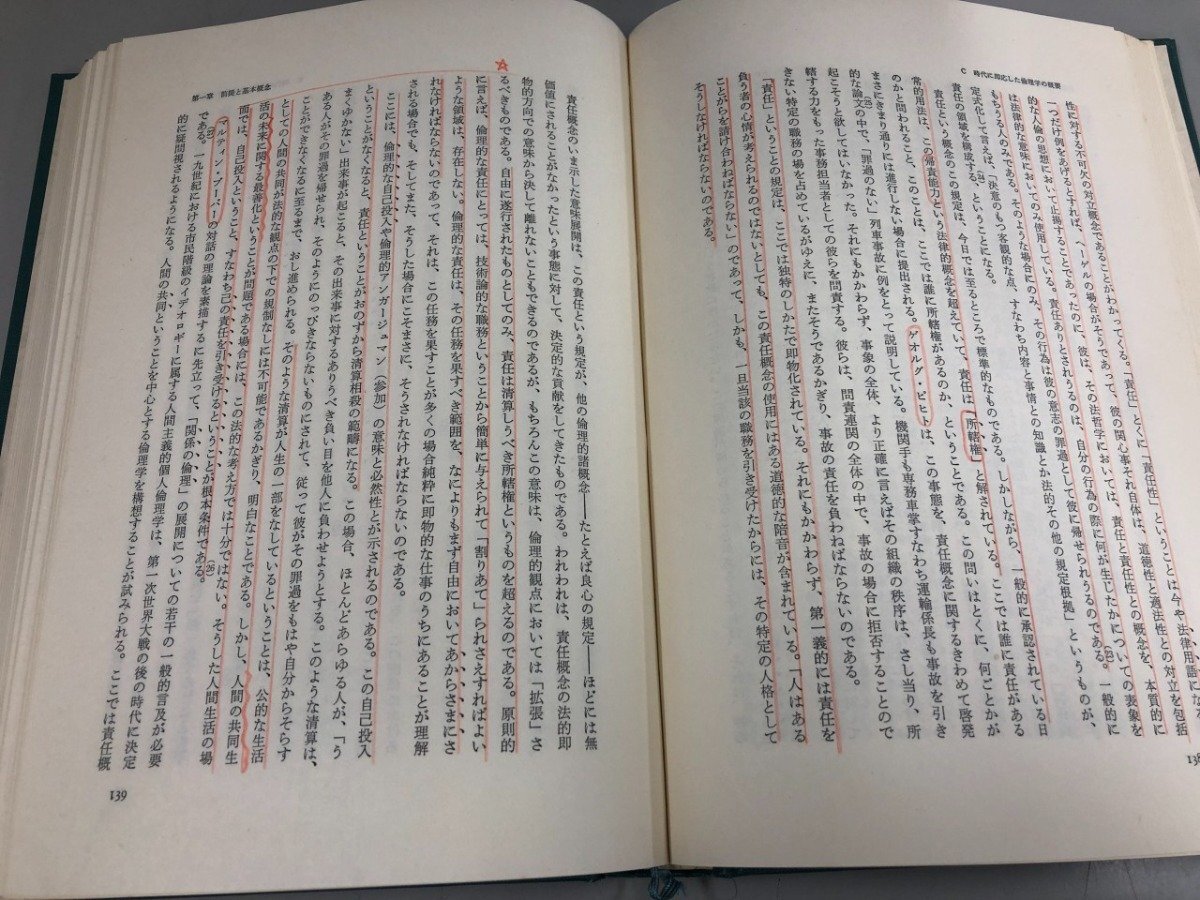 C 時代に即応した倫理学の概要
性に対する不可欠の対立概念であることがわかってくる。「責任」とくに「責任性」ということは今や、法律用語になな
一つだけ例をあげるとすれば、ヘーゲルの場合がそうであって、彼の関心事それ自体は、道徳性と適法性との対立を包括
的な人倫の思想において止揚することであったのに、彼は、その法哲学においては、責任と責任性との概念を、本質的に
は法律的な意味においてのみ使用している。責任ありとされうるのは、自分の行為の際に何が生じたかについての表象を
もちうる人のみである。そのような場合にのみ、その行為は彼の意志の罪過として彼に帰せられうるのである。(23)一般的に
定式化して言えば、「決意のもつ客観的な点、すなわち内容と事情との知識とか法的その他の規定根拠」というものが、
責任の領域を構成する、(24)ということになる。
責任という概念のこの規定は、今日では至るところで標準的なものである。しかしながら、一般的に承認されている日
常的用法は、この帰責能力という法律的概念を超えていて、責任は「所轄権」と解されている。ここでは誰に責任がある
のかと問われること、このことは、ここでは誰に所轄権があるのか、ということである。この問いはとくに、何ごとかが
まさにきまり通りには進行しない場合に提出される。ゲオルグ・ピヒトは、この事態を、責任概念に関するきわめて啓発
的な論文の中で、(25)「罪過のない」列車事故に例をとって説明している。機関手も専務車掌すなわち運輸係長も事故を引き
起こそうと欲してはいなかった。それにもかかわらず、事象の全体、より正確に言えばその組織の秩序は、さし当り、所
轄する力をもった事務担当者としての彼らを問責する。彼らは、問責連関の全体の中で、事故の場合に拒否することので
きない特定の職務の場を占めているがゆえに、またそうであるかぎり、事故の責任を負わねばならないのである。
「責任」ということの規定は、ここでは独特のしかたで即物化されている。それにもかかわらず、第一義的には責任を
負う者の心情が考えられるのではないとしても、この責任概念の使用にはある道徳的な陪音が含まれている。「人はある
ことがらを請け合わねばならない」のであって、しかも、一旦当該の職務を引き受けたからには、その特定の人格として
そうしなければならないのである。
138
第一章 前提と基本概念
責任概念のいま示した意味展開は、この責任という規定が、他の倫理的諸概念――たとえば良心の規定――ほどには無
価値にされることがなかったという事態に対して、決定的な貢献をしてきたものである。われわれは、責任概念の法的即
物的方向での意味から決して離れないこともできるのであるが、もちろんこの意味は、倫理的観点においては「拡張」さ
るべきものである。自由に遂行されたものとしてのみ、責任は清算しうべき所轄権というものを超えるのである。原則的
に言えば、倫理的な責任にとっては、技術論的な職務ということから簡単に与えられて「割りあて」られさえすればよい
ような領域は、存在しない。倫理的な責任は、その任務を果すべき範囲を、なによりもまず自由においてあからさまにさ
れなければならないのであって、それは、この任務を果すことが多くの場合純粋に即物的な仕事のうちにあることが理解
される場合でも、そしてまた、そうした場合にこそまさに、そうされなければならないのである。
ここには、倫理的な自己投入や倫理的アンガージュマン(参加)の意味と必然性とが示されるのである。この自己投入
ということがなくなると、責任ということがおのずから清算相殺の範疇になる。この場合、ほとんどあらゆる人が、「う
まくゆかない」出来事が起こると、その出来事に対するありうべき負い目を他人に負わせようとする。このような清算は、
ある人がその罪過を帰せられ、そのようにのっぴきならないものにされて、従って彼がその罪過をもはや自分からそらす
ことができなくなるに至るまで、おし進められる。そのような清算が人生の一部をなしているということは、公的な生活
としての人間の共同が法的な観点の下での規制なしには不可能であるかぎり、明白なことである。しかし、人間の共同生
活の未来に関する最善化ということが問題である場合には、この法的な考え方では十分ではない。そうした人間生活の場
面では、自己投入ということ、すなわち己の責任を引き受けるということが根本条件である。(26)
マルティン・ブーバーの対話の理論を素描するに先立って、「関係の倫理」の展開についての若干の一般的言及が必要
である。(27)一九世紀における市民階級のイデオロギーに属する人間主義的個人倫理学は、第一次世界大戦の後の時代に決定
的に疑問視されるようになる。人間の共同ということを中心とする倫理学を構想することが試みられる。ここでは責任概
139